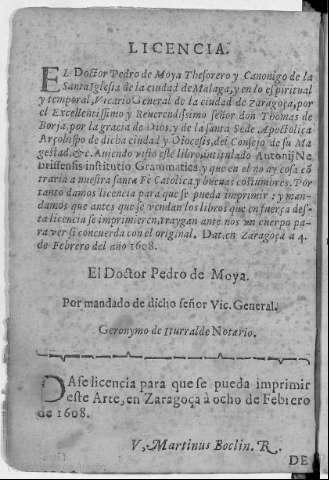 LICENCIA.
EL Doctor Pedro de Moya Thesorero y Canonigo de la
Santa Iglesia de la ciudad de Malaga, y en lo espiritual
y temporal, Vicario General de la ciudad de Zaragoça, por
el Excellentissimo y Reverendissimo señor don Thomas de
Borja, por la gracia de Dios, y de la santa Sede Apostolica
Arçobispo de dicha ciudad y Diocesis, del Consejo de su Ma
gestad, &c. Auiendo visto este libro, intitulado Antonij Ne
brissensis institutio Grammatica, y que en el no ay cosa cõ
traria a nuestra santa Fe Catolica y buenas costumbres. Por
tanto damos licencia para que se pueda imprimir: y man-
damos que antes que se vendan los libros que en fuerça des-
ta licencia se imprimieren, traygan ante nos un cuerpo pa-
ra ver si concuerda con el original. Dat. en Zaragoça a 4.
de Febrero del año 1608.
El Doctor Pedro de Moya.
Por mandado de dicho señor Vic. General.
Geronymo de Iturralde Notario.
DAse licencia para que se pueda imprimir
este Arte, en Zaragoça à ocho de Febrero
de 1608.
V, Martinus Boclin. R.
DE